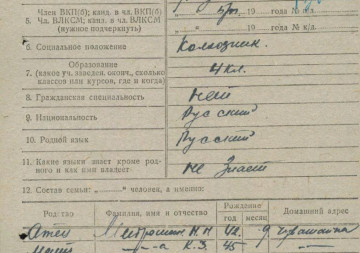 Член ВКП(б); канд. в ВКП(б)
5. Чл. ВЛКСМ; канд. в чл. ВЛКСМ 19 года № к/д.
(нужное подчеркнуть)
6. Социальное положение Колхозник.
Образование
7. (какое уч. заведен. оконч., сколько 4 кл.
классов или курсов, где и когда)
8. Гражданская специальность нет
9. Национальность Русский
10. Родной язык Русский
11. Какие языки знает кроме род-
ного и как ими владеет не знает
12. Состав семьи: „—" человек, а именно:
Родство Фамилия, имя и отчество Рождение Домашний адрес
год месяц
Отец
Мать —„—а К.З. 45 —„—